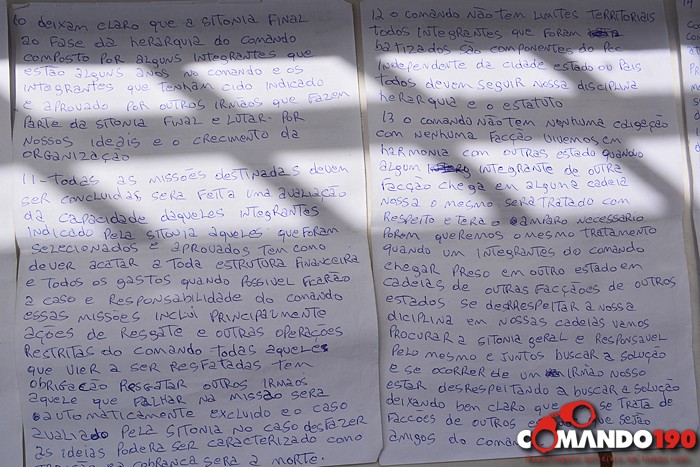 10 deixam claro que a sitonia final
ao fase da herarquia do comando
composto por alguns integrantes que
estão alguns anos no comando e os
integrantes que tenham cido indicado
e aprovado por outros irmãos que fazem
parte da sitonia final e lutar por
nossos ideais e o crecimento da
organização
11 - todas as missões destinadas devem
ser concluidas, sera feita uma avaliação
da capacidade daqueles integrantes
indicado pela sitonia aqueles que foram
selecionados e aprovados tem como
dever acatar a toda estrutora financeira
e todos os gastos quando possivel ficarão
a caso e responsabilidade do comando
essas missões inclui principalmente
ações de resgate e outras operações
restritas do comando todas aqueles
que vier a ser resfatadas tem
obrigação resgatar outros irmãos
aquele que falhar na missão sera
automaticamente excluido e o caso
avalnado pela sitonia no caso desfazer
as ideias podera ser caracterizado como
a cobrança sera a morte.
12 o comando não tem limites territoriais
todos integrantes que foram
batizados são componentes do pcc
independente da cidade estado ou pais
todos devem seguir nossa disciplina
herarquia e o estatuto
13 o comando não tem nenhuma coligação
com nenhuma facção vivemos em
harmonia com outras estado quando
algum integrante de outra
facção chega em alguma cadeia
nossa o mesmo sera tratado com
respeito e tera o amparo necessario
porem queremos o mesmo tratamento
quando um integrantes do comando
chegar preso em outro estado em
cadeias de outras facções de outros
estados se desrrespeitar a nossa
diciplina em nossas cadeias vamos
procurar a sitonia geral e responsavel
pelo mesmo e juntos buscar a solução
e se ocorrer de um irmão nosso
estar desrespeitando a buscar a solução
deixando bem claro que se trata de
faccões de outros estado que
amigos do coman
COMANDO190